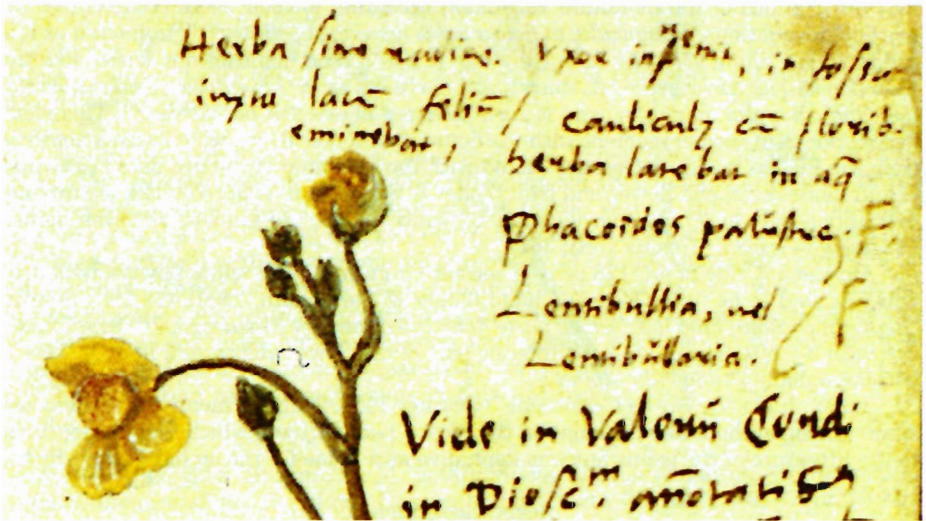 Herba sine radice. Vxor inuenit, in fossa
iuxta lacū felicē /
cauliculꝯ cū florib.
eminebat,
herba latebat in aq̄
Phacoides palustre. F.
Lentibullia, vel F
Lentibūllaria.
Vide in Valeriū Cordi
in Diosc.m an̄otatiōn